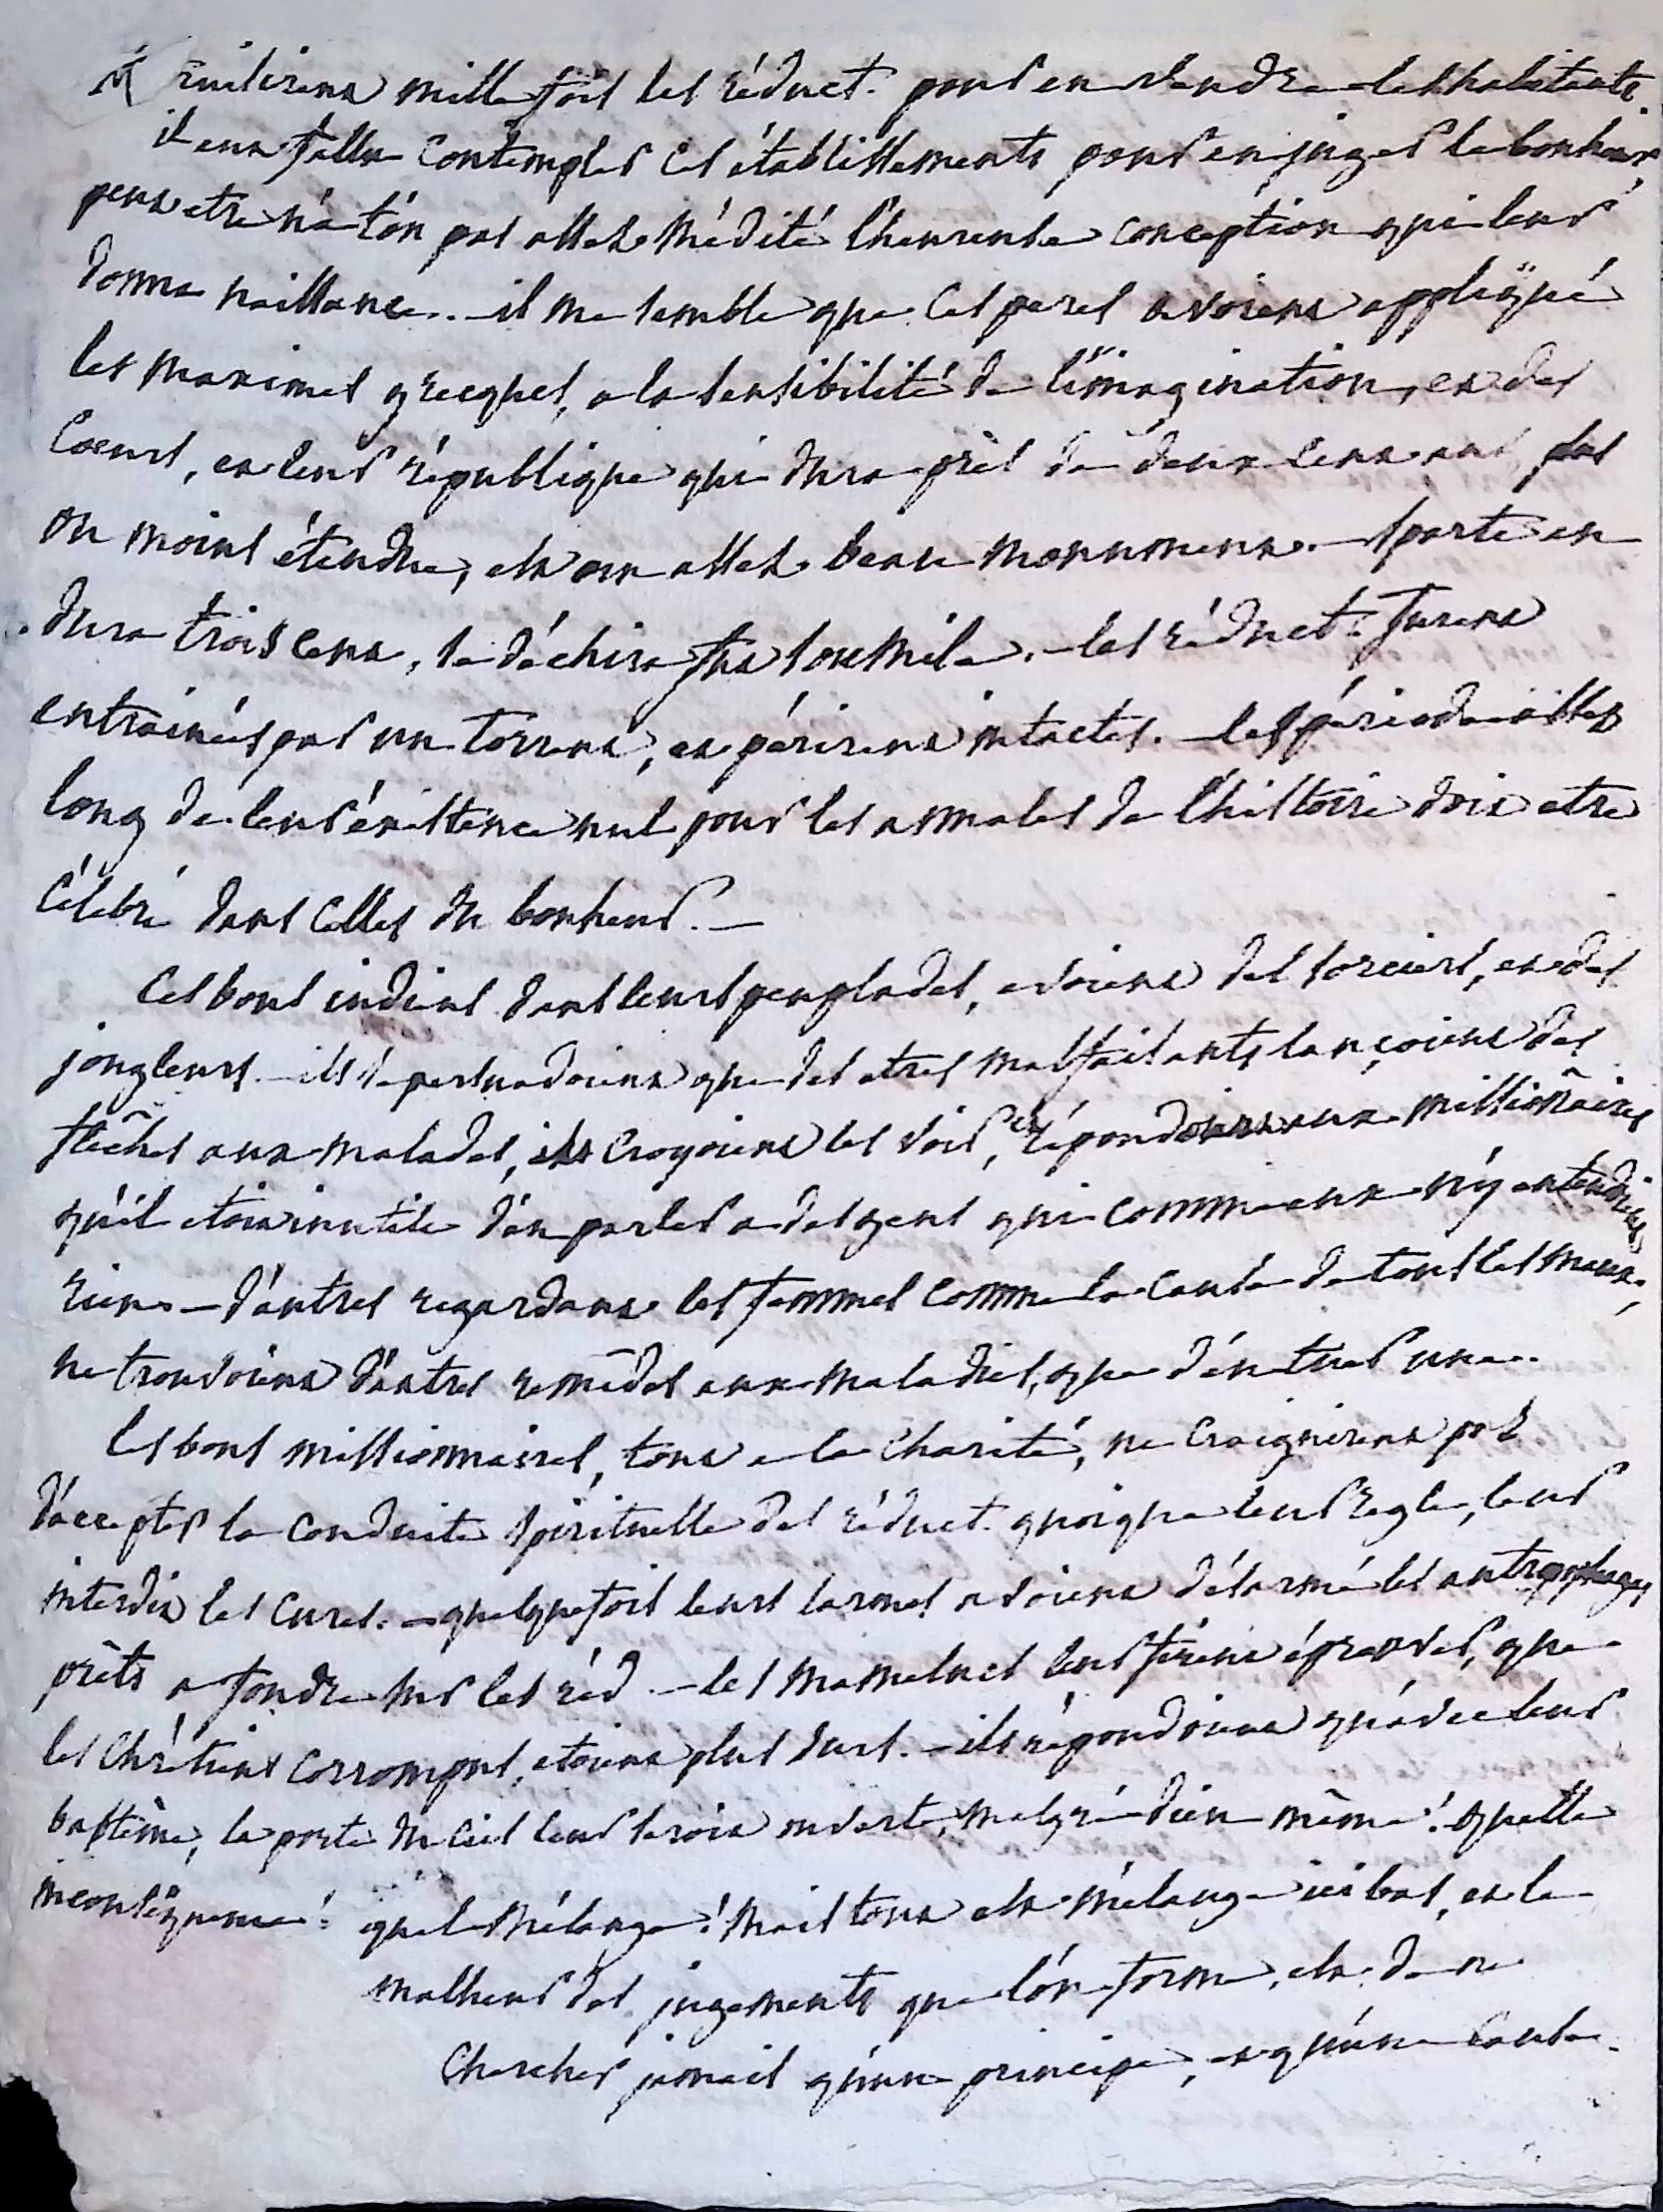 ruilirent mille fois les réduct. pour en vendre les habitants.
il eut fallu contempler ces établissements pour en juger le bonheur,
peut etre n'a t'on pas assez médité l'heureuse conception qui leur
donna naissance. - il me semble que ces peres avoient appliqué
les maximes grecques, a la sensibilité de l'imagination, et des
coeurs, et leur république qui dura près de deux cent ans, plus
ou moins étendue, est un assez beau monument. - sparte en
dura trois cent, se déchira fut soumise. - les réduct. furent
entrainées par un torrent, et périrent intactes. - les période assez
long de leur éxistence nul pour les annales de l'histoire doit etre
célébré dans celles du bonheur. -
Ces bons indiens dans leurs peuplades, avoient des sorciers, et des
jongleurs - ils se persuadoient que des etres malfaisants lançoient des
flêches aux malades, ils croyoient les voir, et répondoient aux missionaires
qu'il etoit inutile d'en parler a des gens qui comme eux n'y entendoient
rien. - d'autres regardant les femmes comme la cause de tous les maux,
ne trouvoient d'autres remêdes aux maladies, que d'en tuer une.
les bons missionnaires, tout a la charité, ne craignirent pas
d'accepter la conduite spirituelle des réduct. quoique leur regle, leur
interdit les cures. - quelquefois leurs larmes avoient désarmé les antropophages
prêts a fondre sur les réd. - les mamelucs leur firent éprouver, que
les chrétiens corrompus, etoient plus durs. - ils répondoient qu'avec leur
baptême, la porte du ciel leur seroit ouverte, malgré dieu même! quelle
inconséquence! quel mélange! mais tout est mélange ici bas, et le
malheur des jugements que l'on forme, est de ne
chercher jamais qu'un principe, et qu'une cause.